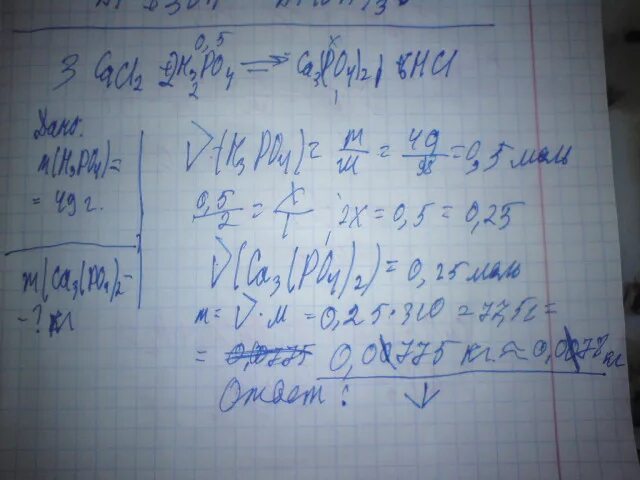 0,5 x
3 CaCl2 2H3PO4 ⇌ Ca3(PO4)2↓ 6HCl
2 1
Дано:
m(H3PO4)=
= 49 г.
m(Ca3(PO4)2-
-? кг
V(H3PO4)= m/M = 49/98 =0,5 моль
0,5/2 = x/1; 2x = 0,5 = 0,25
V(Ca3(PO4)2)=0,25 моль
m= V·M =0,25·310 =77,5г=
= 0,0775 0,0775 кг ≈ 0,078 кг
Ответ: ↓